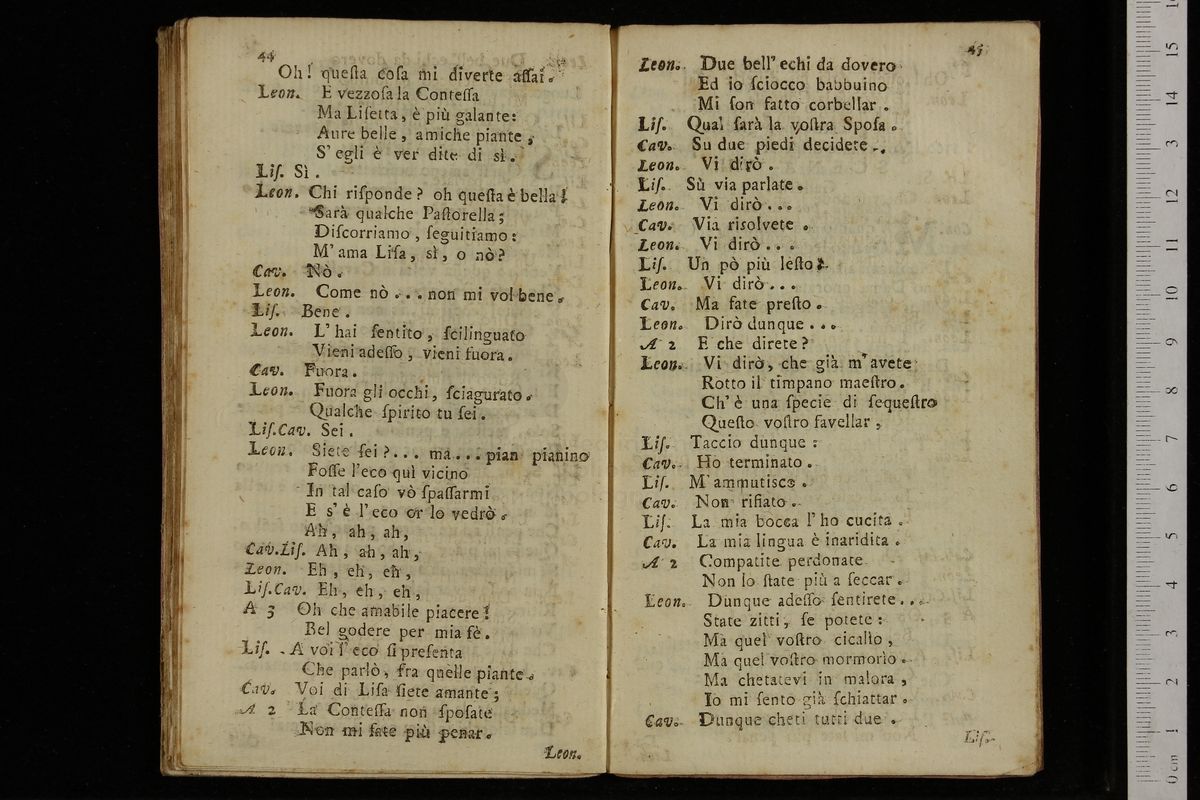 44
Oh! queſta coſa mi diverte aſſai.
Leon. E vezzoſa la Conteſſa
Ma Liſetta, è più galante:
Aure belle, amiche piante,
S' egli è ver dite di sì.
Liſ. Sì.
Leon. Chi riſponde? oh queſta è bella!
Sarà qualche Paſtorella;
Diſcorriamo, ſeguitiamo:
M' ama Liſa, sì, o nò?
Cav. Nò.
Leon. Come nò... non mi vol bene.
Liſ. Bene.
Leon. L' hai ſentito, ſcilinguato
Vieni adeſſo, vieni fuora.
Cav. Fuora.
Leon. Fuora gli occhi, ſciagurato.
Qualche ſpirito tu ſei.
Liſ.Cav. Sei.
Leon. Siete ſei?... ma... pian pianino
Foſſe l'eco quì vicino
In tal caſo vò ſpaſſarmi
E s' è l' eco or lo vedrò.
Ah, ah, ah,
Cav.Liſ. Ah, ah, ah,
Leon. Eh, eh, eh,
Liſ.Cav. Eh, eh, eh,
A 3 Oh che amabile piacere!
Bel godere per mia fè.
Liſ. A voi l' eco ſi preſenta
Che parlò, fra quelle piante.
Cav. Voi di Liſa ſiete amante;
A 2 La Conteſſa non ſpoſate
Non mi fate più penar.
Leon.
45
Leon. Due bell' echi da dovero
Ed io ſciocco babbuino
Mi ſon fatto corbellar.
Liſ. Qual ſarà la voſtra Spoſa.
Cav. Su due piedi decidete.
Leon. Vi dirò.
Liſ. Sù via parlate.
Leon. Vi dirò...
Cav. Via riſolvete.
Leon. Vi dirò...
Liſ. Un pò più leſto.
Leon. Vi dirò...
Cav. Ma fate preſto.
Leon. Dirò dunque...
A 2 E che direte?
Leon. Vi dirò, che già m' avete
Rotto il timpano maeſtro.
Ch' è una ſpecie di ſequeſtro
Queſto voſtro favellar,
Liſ. Taccio dunque:
Cav. Ho terminato.
Liſ. M' ammutisco.
Cav. Non rifiato.
Liſ. La mia bocca l' ho cucita.
Cav. La mia lingua è inaridita.
A 2 Compatite perdonate
Non lo ſtate più a ſeccar.
Leon. Dunque adeſſo ſentirete...
State zitti, ſe potete:
Ma quel voſtro cicalìo,
Ma quel voſtro mormorìo.
Ma chetatevi in malora,
Io mi ſento già ſchiattar.
Cav. Dunque cheti tutti due.
Liſ.
0 cm 1 2 3 4 5 6 7 8 9 10 11 12 13 14 15